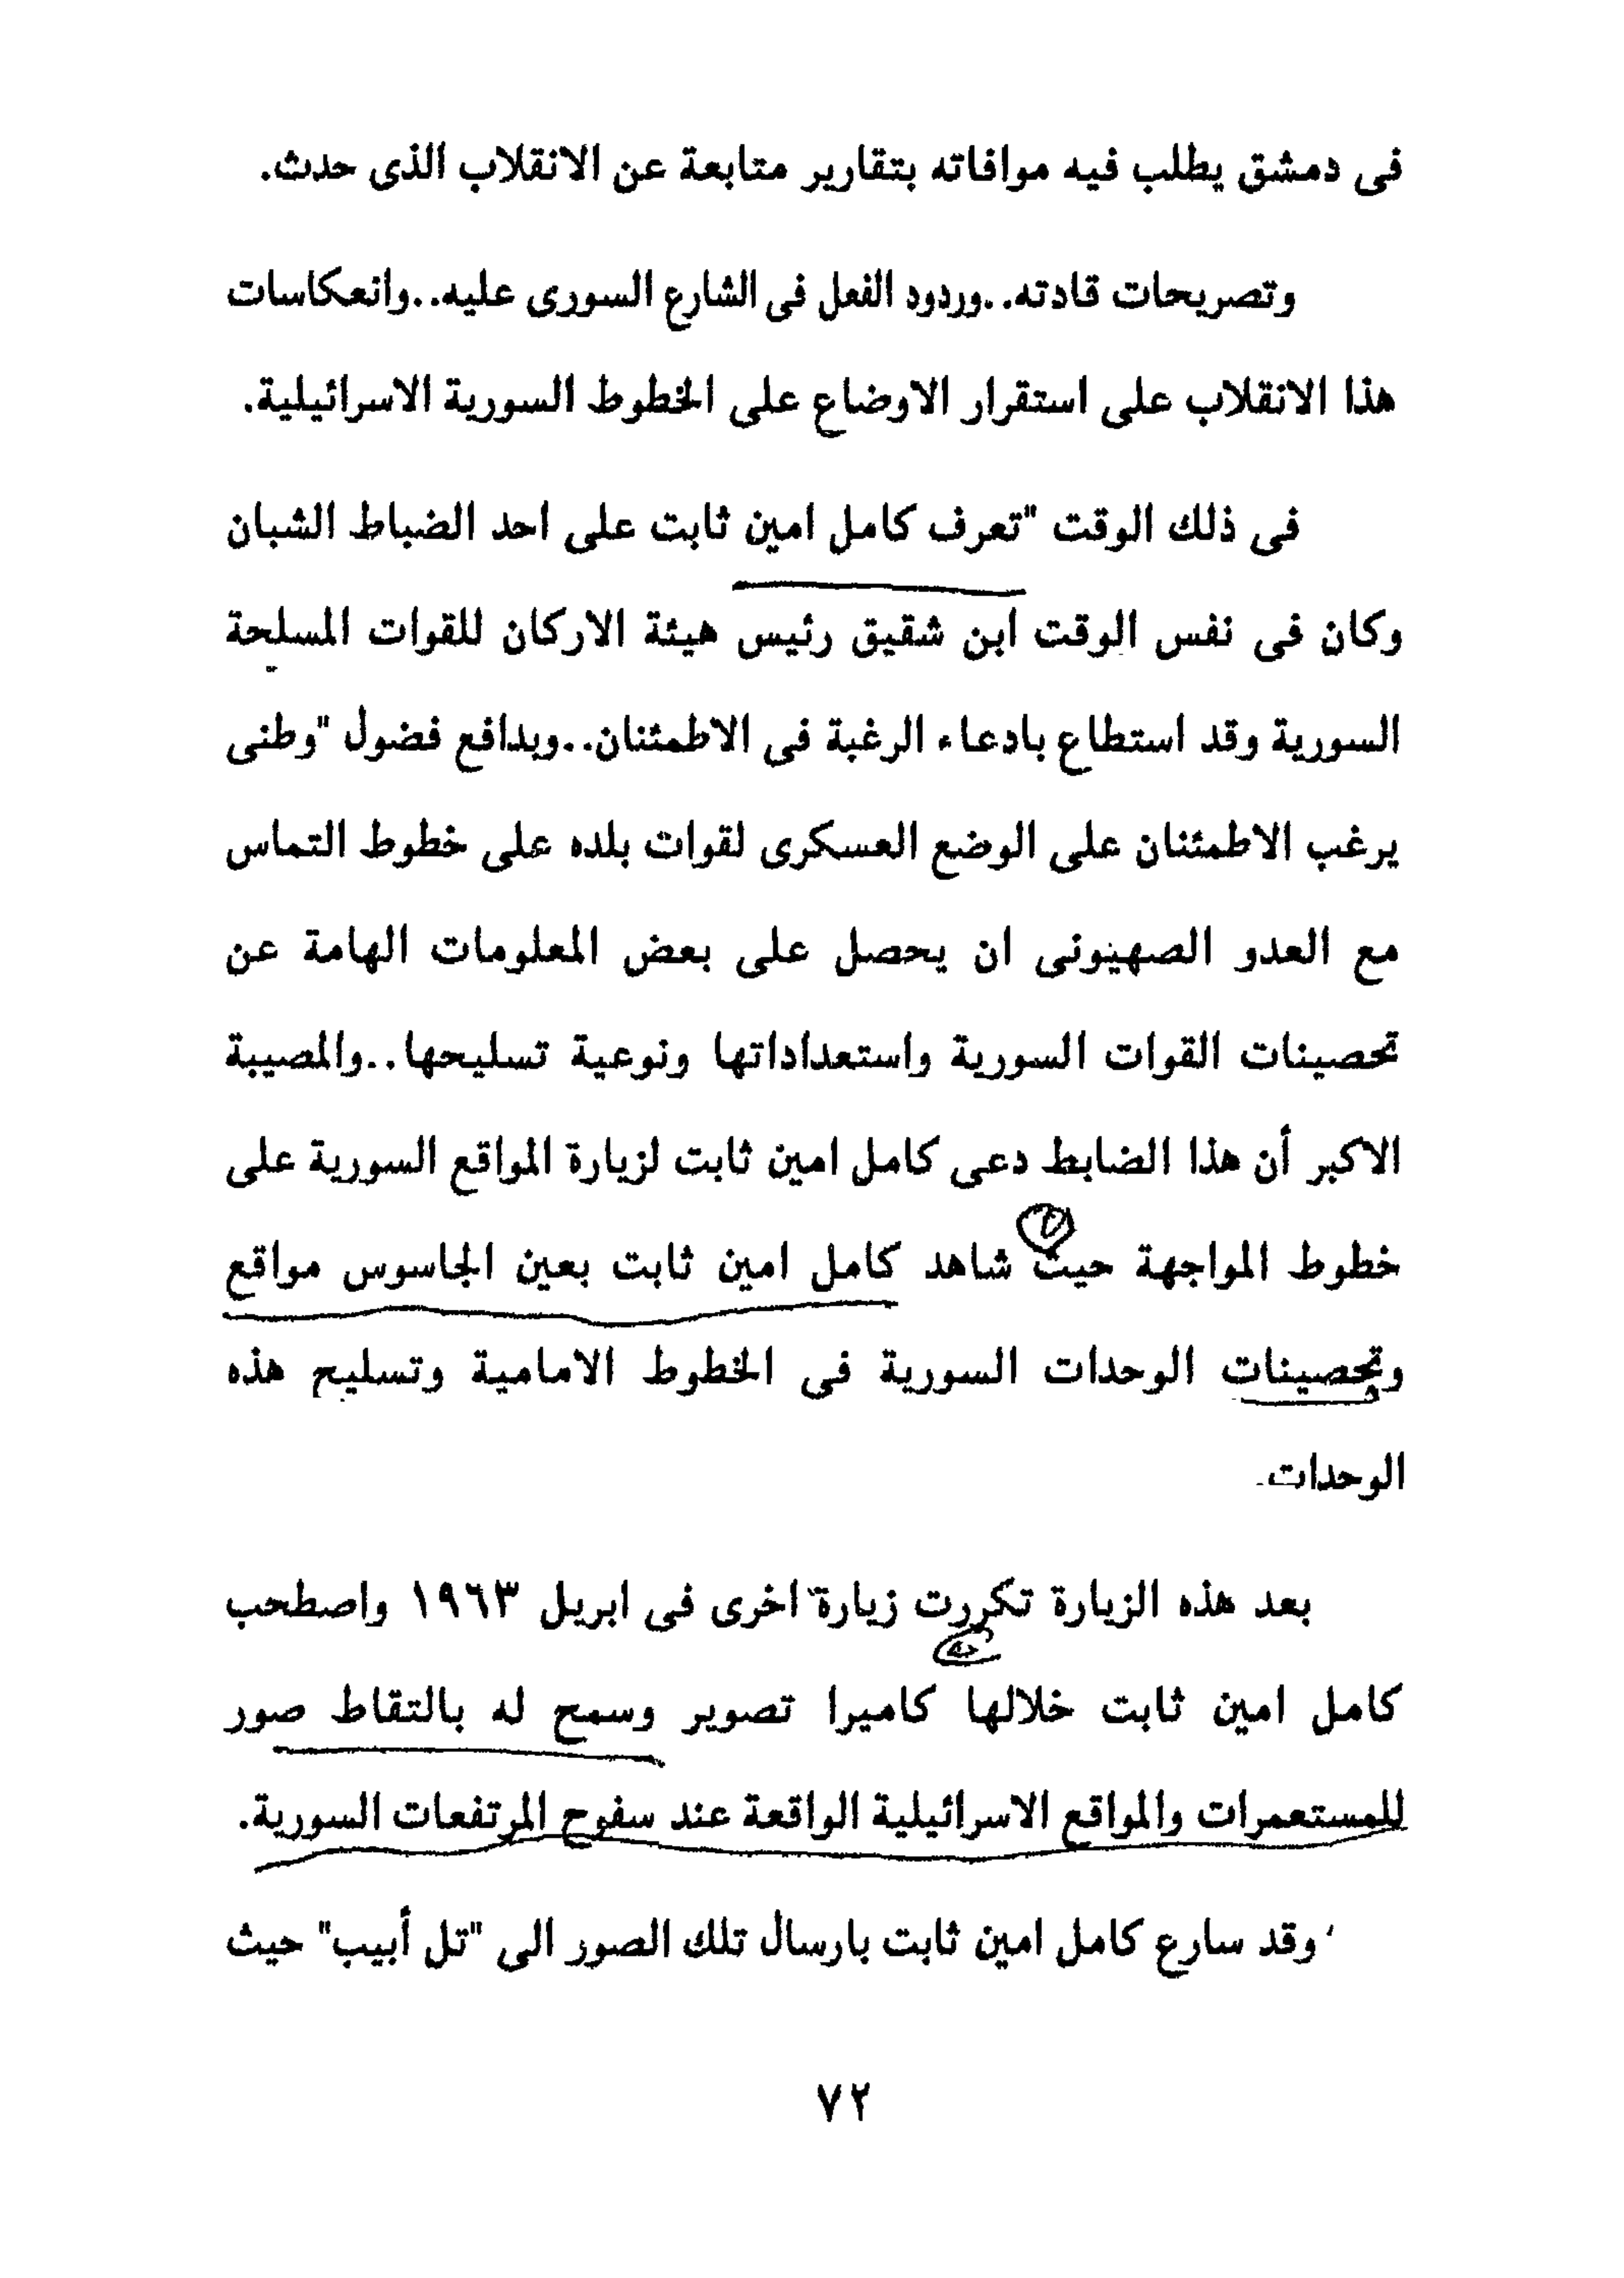 فى دمشق يطلب فيه موافاته بتقارير متابعة عن الانقلاب الذى حدث.
وتصريحات قادته..وردود الفعل فى الشارع السورى عليه..وانعكاسات
هذا الانقلاب على استقرار الاوضاع على الخطوط السورية الاسرائيلية.
فى ذلك الوقت "تعرف كامل امين ثابت على احد الضباط الشبان
وكان فى نفس الوقت ابن شقيق رئيس هيئة الاركان للقوات المسلحة
السورية وقد استطاع بادعاء الرغبة فى الاطمئنان..وبدافع فضول "وطنى
يرغب الاطمئنان على الوضع العسكرى لقوات بلده على خطوط التماس
مع العدو الصهيونى ان يحصل على بعض المعلومات الهامة عن
تحصينات القوات السورية واستعداداتها ونوعية تسليحها..والمصيبة
الاكبر أن هذا الضابط دعى كامل امين ثابت لزيارة المواقع السورية على
خطوط المواجهة حيث شاهد كامل امين ثابت بعين الجاسوس مواقع
وتحصينات الوحدات السورية فى الخطوط الامامية وتسليح هذه
الوحدات.
بعد هذه الزيارة تكررت زيارة اخرى فى ابريل ١٩٦٣ واصطحب
كامل امين ثابت خلالها كاميرا تصوير وسمح له بالتقاط صور
للمستعمرات والمواقع الاسرائيلية الواقعة عند سفوح المرتفعات السورية.
وقد سارع كامل امين ثابت بارسال تلك الصور الى "تل أبيب" حيث
٧٢